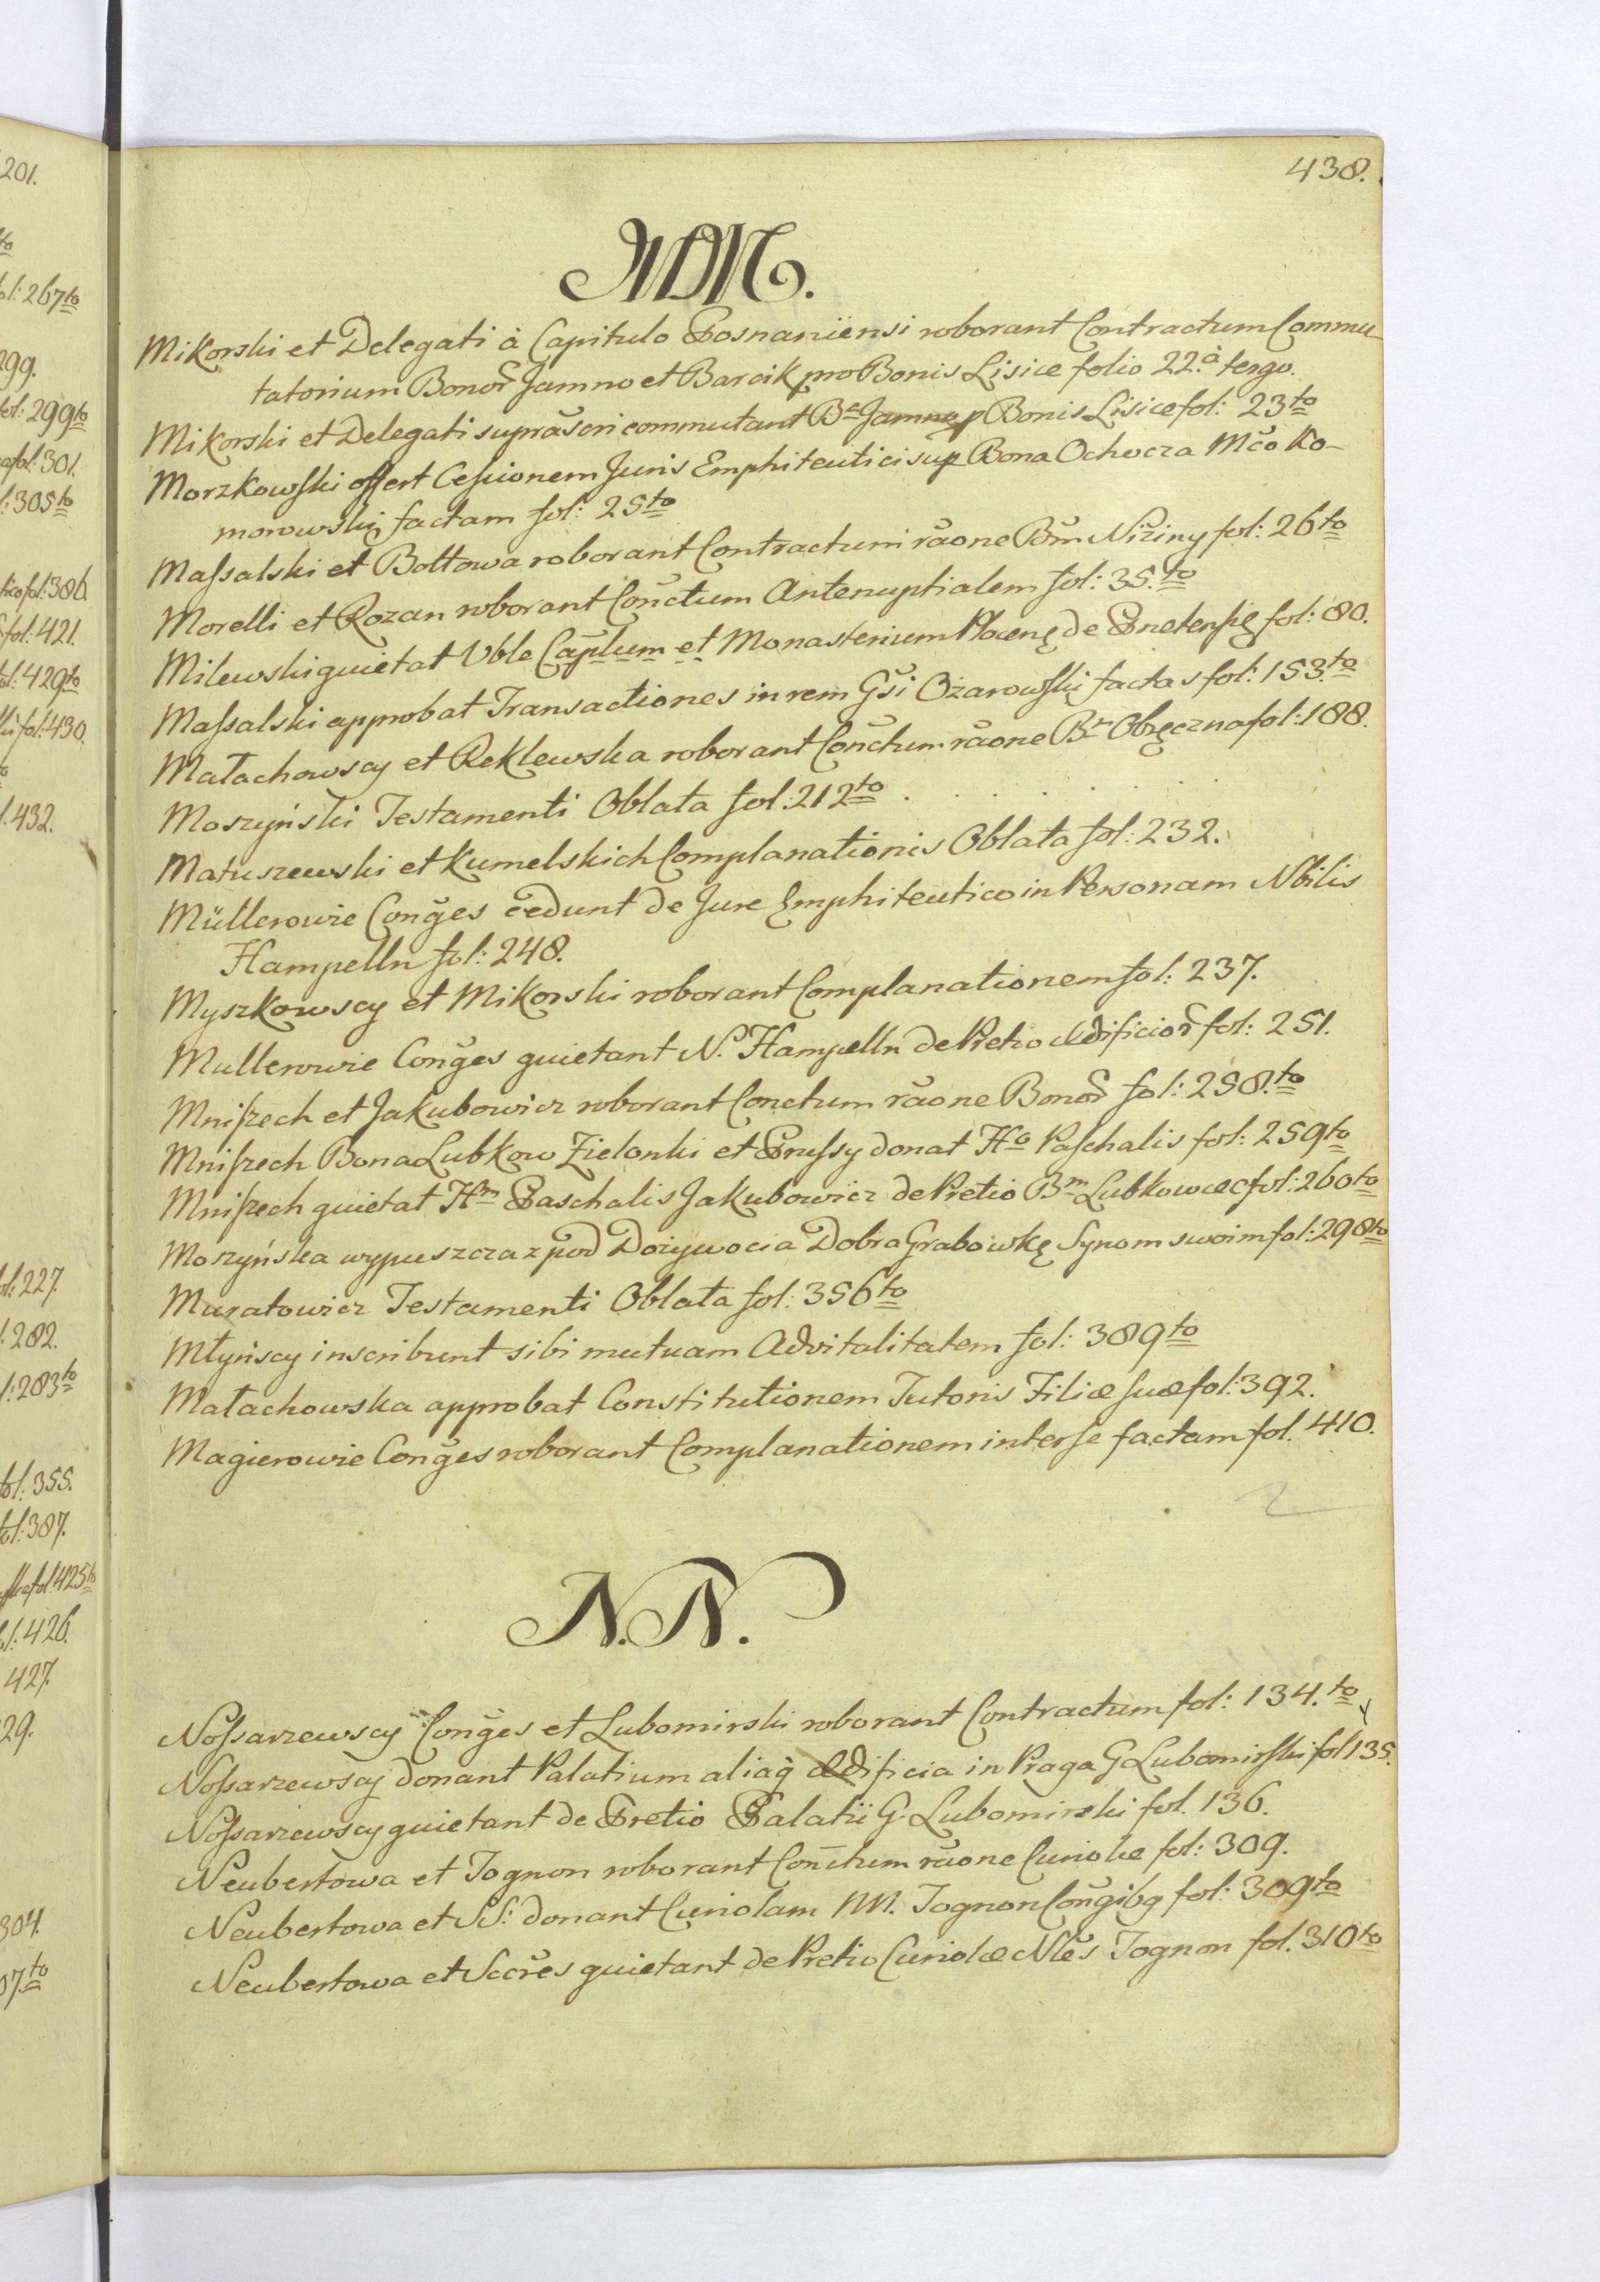 201.
to
ol: 267to
299.
fol: 299to
fol: 301.
l: 305to
fol: 386.
fol: 421.
ol: 429to
fol: 430.
l. 432.
ol: 227.
l: 282.
l: 283to
fol: 355.
fol: 387.
fol 425to
ol: 426.
427.
29.
304.
07.to
438.
MM.
Mikorski et Delegati à Capitulo Posnaniensi roborant Contractum Commu-
tatorium Bonor Jamno et Barcik pro Bonis Lisice folio 22. à tergo.
Mikorski et Delegati suprascri commutant Ba Jamno p Bonis Lisice fol: 23to
Morzkowski offert Cessionem Juris Emphiteutici sup Bona Ochocza Mco Ko-
morowski factam fol: 25to
Massalski et Bołtowa roborant Contractum raone Bom Niziny fol: 26to
Morelli et Rozan roborant Conctum Antenuptialem fol: 35.to
Milewski quietat Vble Caplum et Monasterium Placen de fol: 80.
Massalski approbat Transactiones in rem Gsi Ożarowski factas fol: 153.to
Małachowscy et Reklewska roborant Conctum raone Br Obręczna fol: 188.
Moszyński Testamenti Oblata fol: 212to
Matuszewski et Kumelskich Complanationis Oblata fol: 232.
Müllerowie Conges cedunt de Jure Emphiteutico in Personam Nbilis
Hampelln fol: 248.
Myszkowscy et Mikorski roborant Complanationem fol: 237.
Mullerowie Conges quietant N. Hampelln de Pretio Ædificior fol: 251.
Mniszech et Jakubowicz roborant Conctum raone Bonor fol: 258.to
Mniszech Bona Lubkow Zielonki et Prussy donat Ho Paschalis fol: 259to
Mniszech quietat Hm Paschalis Jakubowicz de Pretio Bm Lubkow &c fol: 260to
Moszyńska wypuszcza z pod Dożywocia Dobra Grabowkę Synom swoim fol: 298to
Muratowicz Testamenti Oblata fol: 356to
Młyńscy inscribunt sibi mutuam Advitalitatem fol: 389to
Małachowska approbat Constitutionem Tutoris Filiæ suæ fol: 392.
Magierowie Conges roborant Complanationem inter se factam fol. 410.
N.N.
Nossarzewscy Conges et Lubomirski roborant Contractum fol: 134.to
Nossarzewscy donant Palatium aliaq Ædificia in Praga G Lubomirski fol 135.
Nossarzewscy quietant de Pretio Palatii G. Lubomirski fol. 136.
Neubertowa et Tognon roborant Conctum raone Curiolæ fol: 309.
Neubertowa et SS: donant Curiolam NN. Tognon Congibq fol: 309to
Neubertowa et Sccres quietant de Pretio Curiolæ Nles Tognon fol. 310to